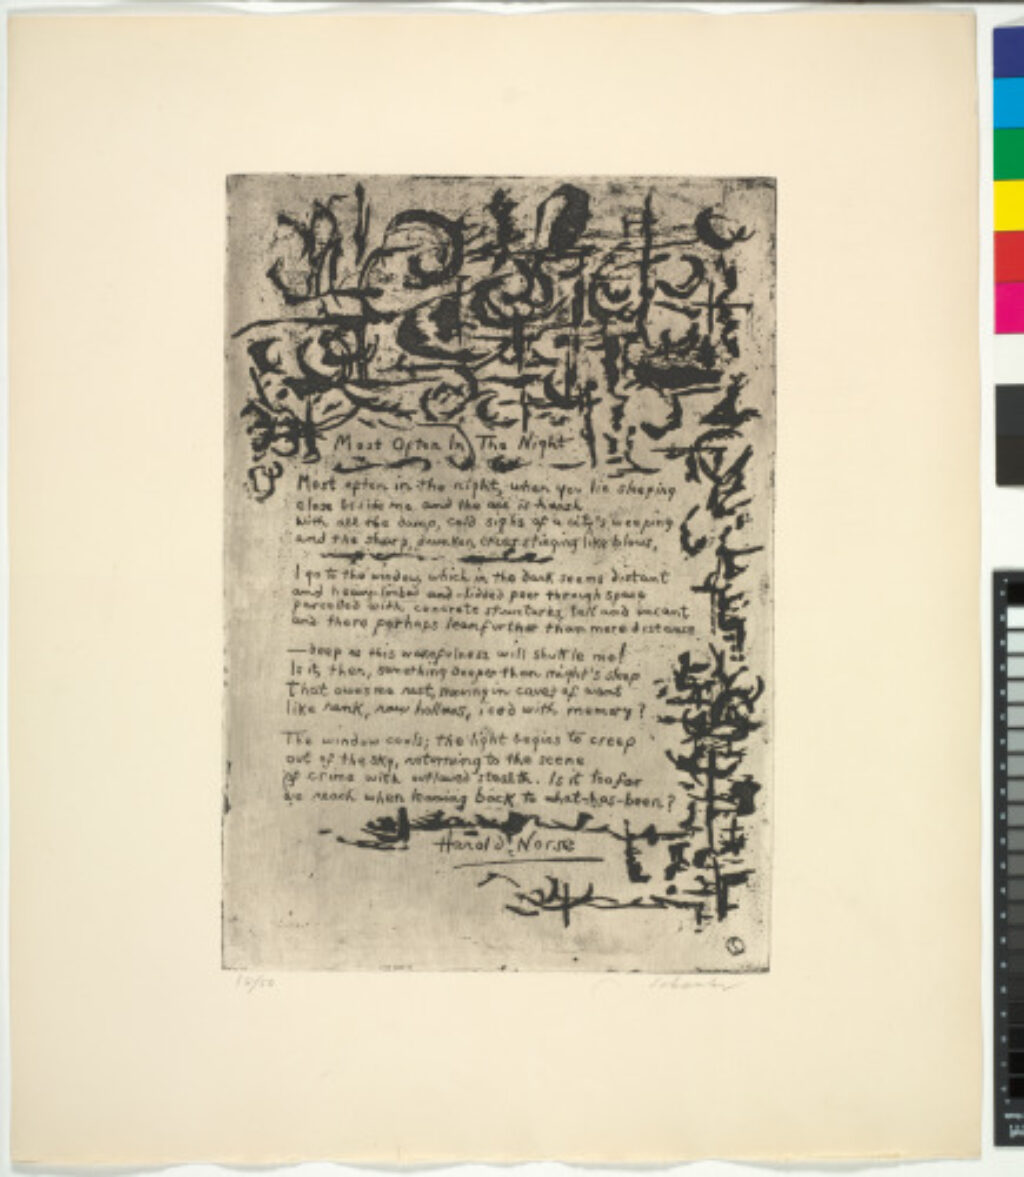 Most Often In The Night
Most often in the night, when you lie sleeping
close beside me and the air is harsh
with all the damp, cold sighs of a city's weeping
and the sharp, drunken cries stinging like blows,
I go to the window, which in the dark seems distant
and heavy-limbed and -lidded peer through space
parcelled with concrete structures, tall and vacant
and there perhaps lean further than mere distance
—deep as this wakefulness will shuttle me!
Is it, then, something deeper than night's sleep
That owes me rest, moving in caves of want
like rank, raw hollows, iced with memory?
The window cools; the light begins to creep
out of the sky, returning to the scene
of crime with outlawed stealth. Is it too far
we reach when leaning back to what-has-been?
Harold Norse
/50